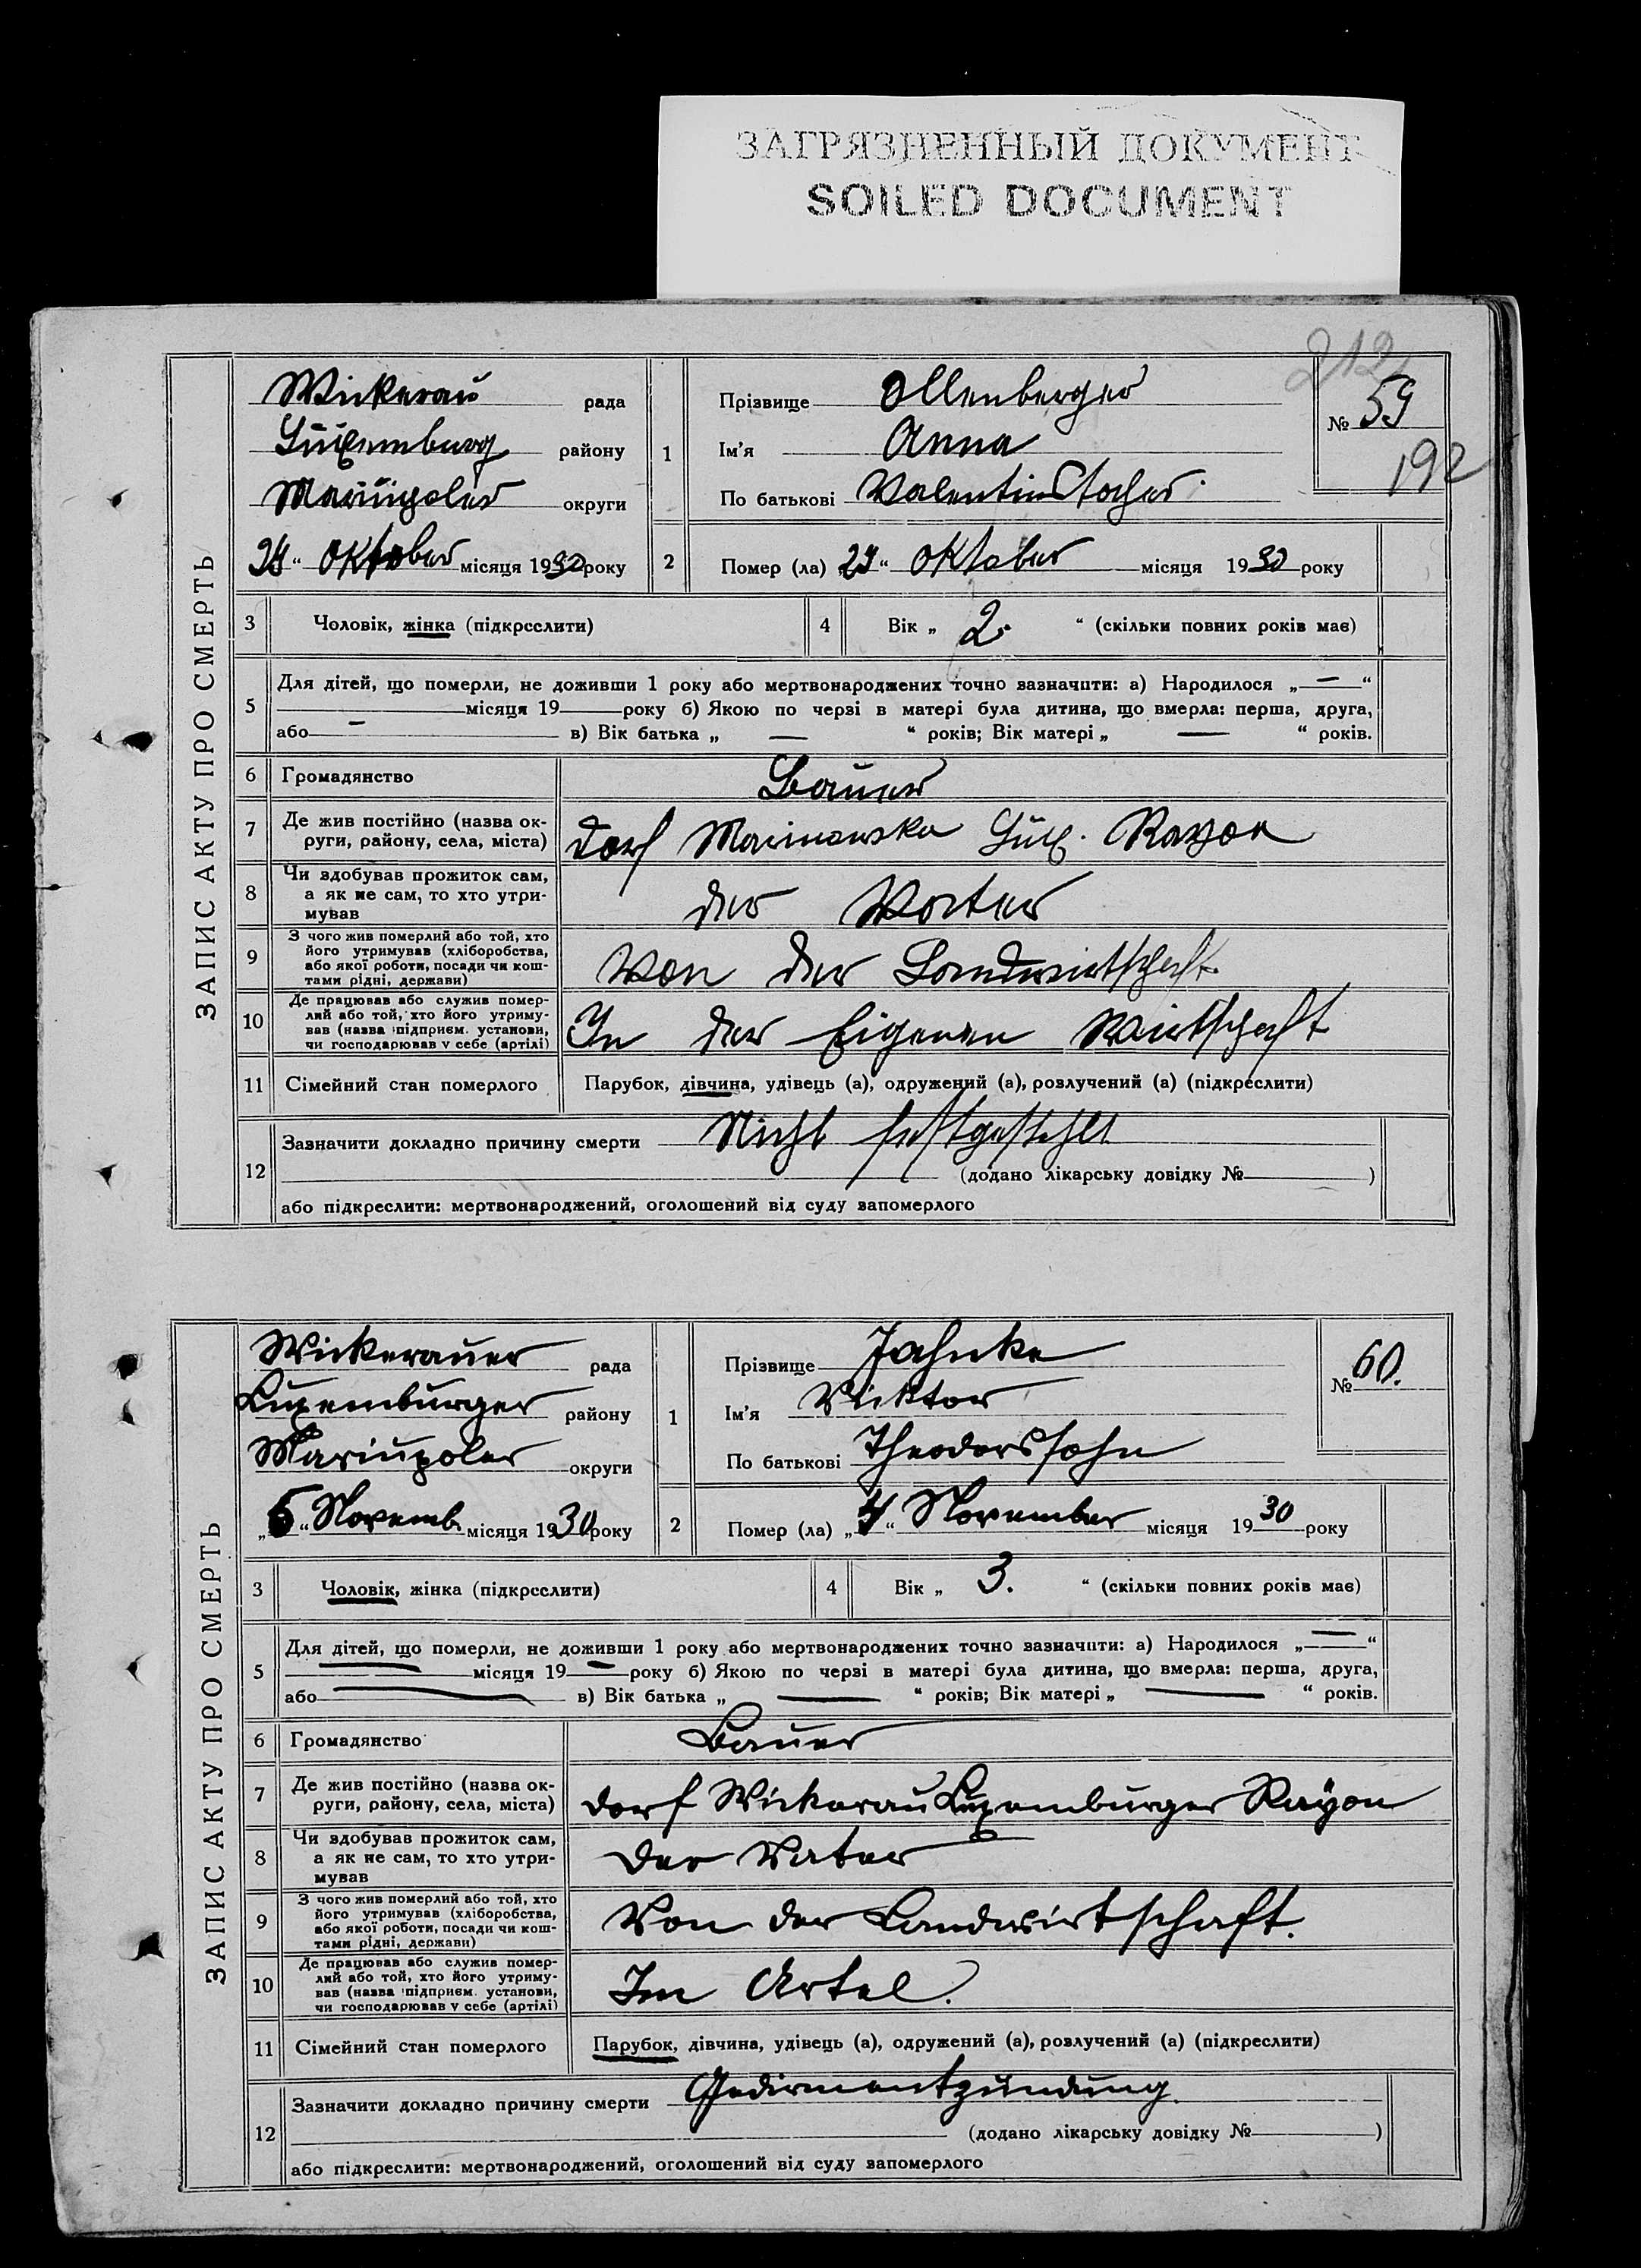 ЗАГРЯЗНЕННЫЙ ДОКУМЕНТ
SOILED DOCUMENT
212
ЗАПИС АКТУ ПРО СМЕРТЬ
Wickerau рада
Luxemburg району
Mariupoler округи
" Oktober місяця 1930 року
1 Прізвище Ollenberger
Ім'я Anna
По батькові Valentinstocher
№ 59
192
2 Помер (ла) " Oktober місяця 1930 року
3 Чоловік, жінка (підкреслити)
4 Вік „ 2. “ (скільки повних років має)
5 Для дітей, що померли, не доживши 1 року або мертвонароджених точно зазначити: а) Народилося „ — “
місяця 19 року б) Якою по черзі в матері була дитина, що вмерла: перша, друга,
або — в) Вік батька „ — “ років; Вік матері „ — “ років.
6 Громадянство Bauer
7 Де жив постійно (назва ок-
руги, району, села, міста) Dorf Marinowka Lux. Rayon
8 Чи здобував прожиток сам,
а як не сам, то хто утри-
мував der Vorter
9 З чого жив померлий або той, хто
його утримував (хліборобства,
або якої роботи, посади чи кош-
тами рідні, держави) Von der Landwirtschaft.
10 Де працював або служив помер-
лий або той, хто його утриму-
вав (назва підприєм. установи,
чи господарював у себе (артілі) In der Eigenen Wirtschaft
11 Сімейний стан померлого Парубок, дівчина, удівець (а), одружений (а), розлучений (а) (підкреслити)
12 Зазначити докладно причину смерти Nicht festgestehlt
(додано лікарську довідку № )
або підкреслити: мертвонароджений, оголошений від суду запомерлого
ЗАПИС АКТУ ПРО СМЕРТЬ
Wickerauer рада
Luxemburger району
Mariupoler округи
„5“ Novemb. місяця 1930 року
1 Прізвище Jahnke
Ім'я Viktor
По батькові Theodorssohn
№ 60.
2 Помер (ла) „4“ November місяця 1930 року
3 Чоловік, жінка (підкреслити)
4 Вік „ 3. “ (скільки повних років має)
5 Для дітей, що померли, не доживши 1 року або мертвонароджених точно зазначити: а) Народилося „ — “
— місяця 19 — року б) Якою по черзі в матері була дитина, що вмерла: перша, друга,
або — в) Вік батька „ — “ років; Вік матері „ — “ років.
6 Громадянство Bauer
7 Де жив постійно (назва ок-
руги, району, села, міста) Dorf Wickerau Luxemburger Rayon
8 Чи здобував прожиток сам,
а як не сам, то хто утри-
мував Der Vater
9 З чого жив померлий або той, хто
його утримував (хліборобства,
або якої роботи, посади чи кош-
тами рідні, держави) Von der Landwirtschaft.
10 Де працював або служив помер-
лий або той, хто його утриму-
вав (назва підприєм. установи,
чи господарював у себе (артілі) Im Artel.
11 Сімейний стан померлого Парубок, дівчина, удівець (а), одружений (а), розлучений (а) (підкреслити)
12 Зазначити докладно причину смерти Gedirmentzündung.
(додано лікарську довідку № )
або підкреслити: мертвонароджений, оголошений від суду запомерлого